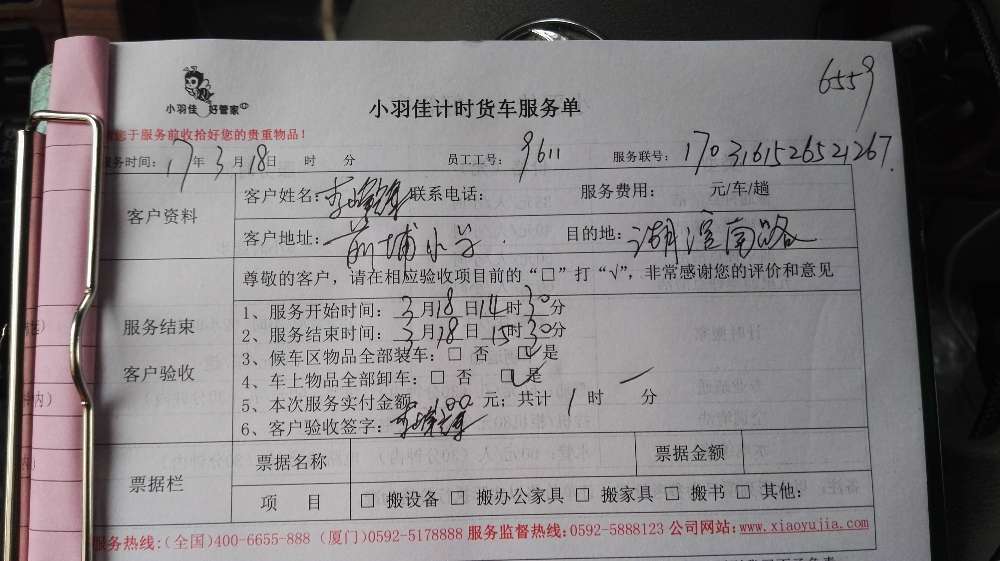 6559
小羽佳 好管家
小羽佳计时货车服务单
您于服务前收拾好您的贵重物品！
服务时间：17年3月18日 时 分 员工工号：9611 服务联号：170316152652126​7.
客户资料
客户姓名：李 联系电话： 服务费用： 元/车/趟
客户地址：前埔小学. 目的地：湖滨南路
尊敬的客户，请在相应验收项目前的“□”打“√”，非常感谢您的评价和意见
服务结束
客户验收
1、服务开始时间：3月18日14时30分
2、服务结束时间：3月18日15时30分
3、候车区物品全部装车：□ 否 □ 是
4、车上物品全部卸车：□ 否 □ 是
5、本次服务实付金额 100 元；共计 1 时 一 分
6、客户验收签字：李
票据栏
票据名称 票据金额
项 目 □ 搬设备 □ 搬办公家具 □ 搬家具 □ 搬书 □ 其他：
服务热线:(全国)400-6655-888 (厦门)0592-5178888 服务监督热线:0592-5888123 公司网站:www.xiaoyujia.com